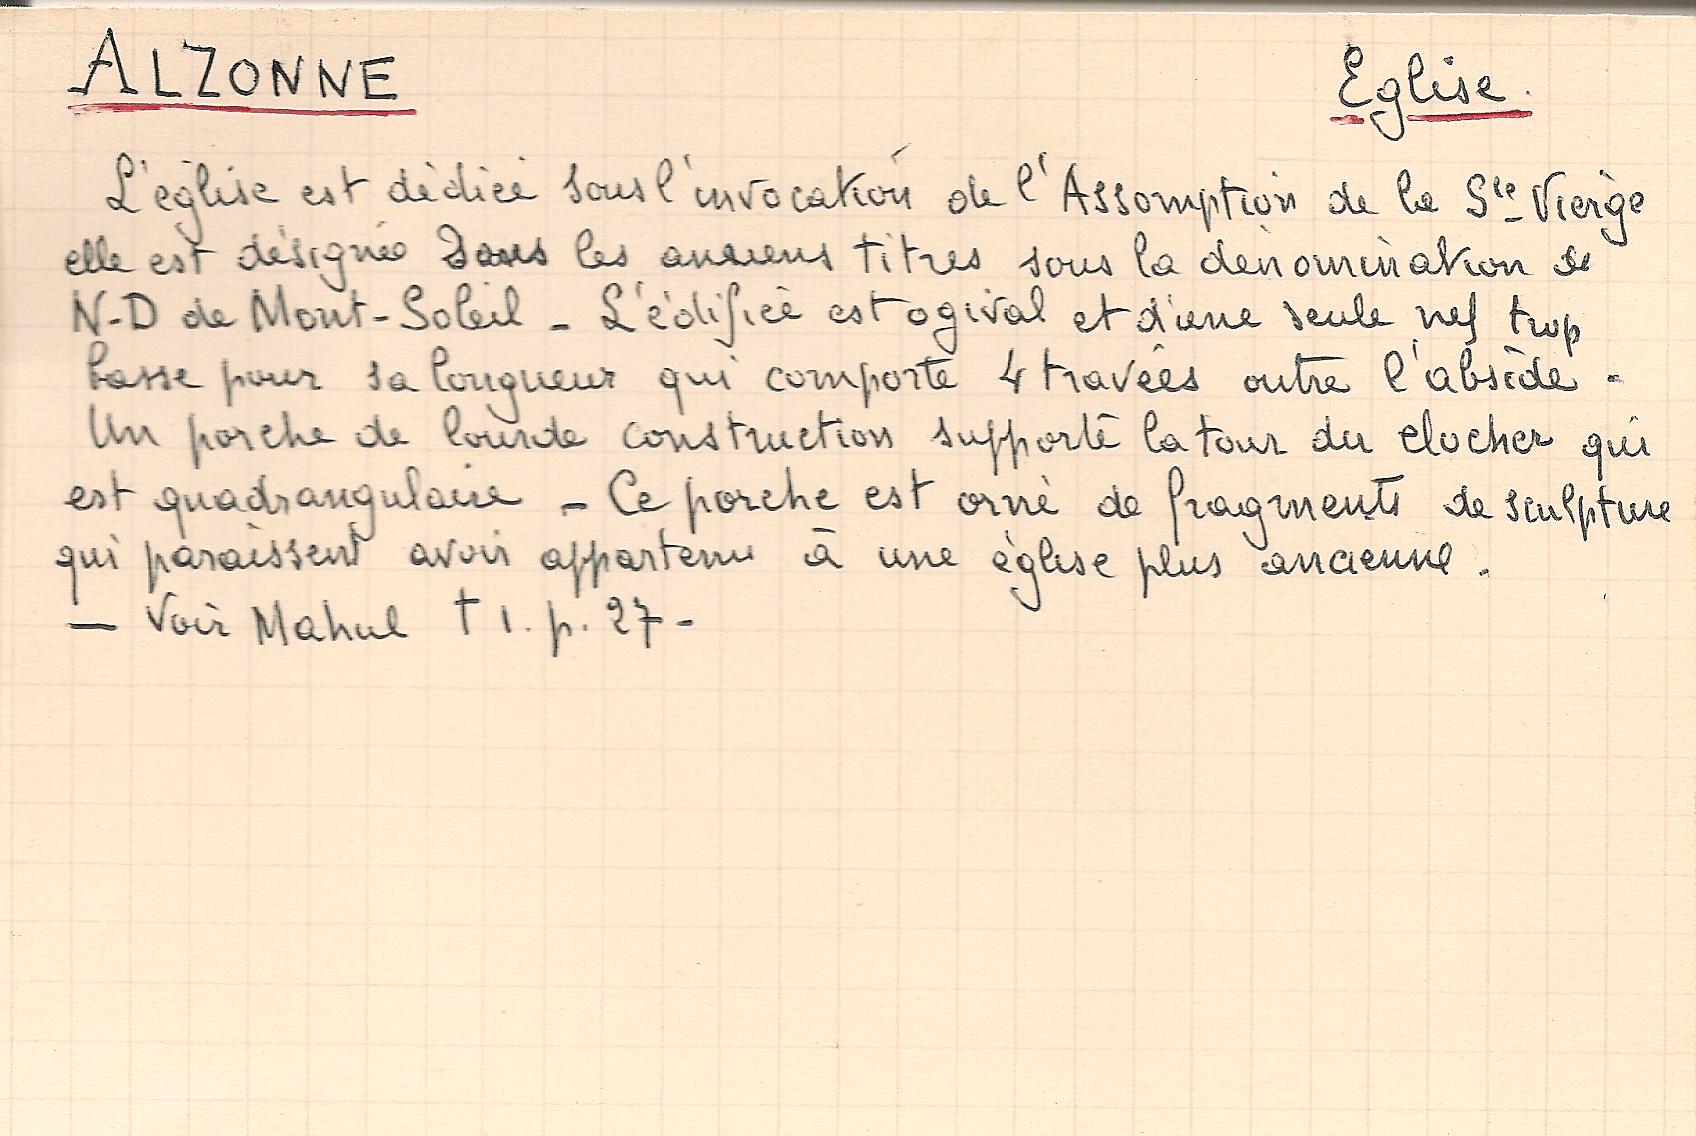 ALZONNE Eglise.
L'église est dédiée sous l'invocation de l'Assomption de la Ste Vierge
elle est désignée dans les anciens titres sous la dénomination de
N-D de Mont-Soleil - L'édifice est ogival et d'une seule nef trop
basse pour sa longueur qui comporte 4 travées outre l'abside -
Un porche de lourde construction supporte la tour du clocher qui
est quadrangulaire - Ce porche est orné de fragments de sculpture
qui paraissent avoir appartenu à une église plus ancienne.
— Voir Mahul t 1. p. 27 -